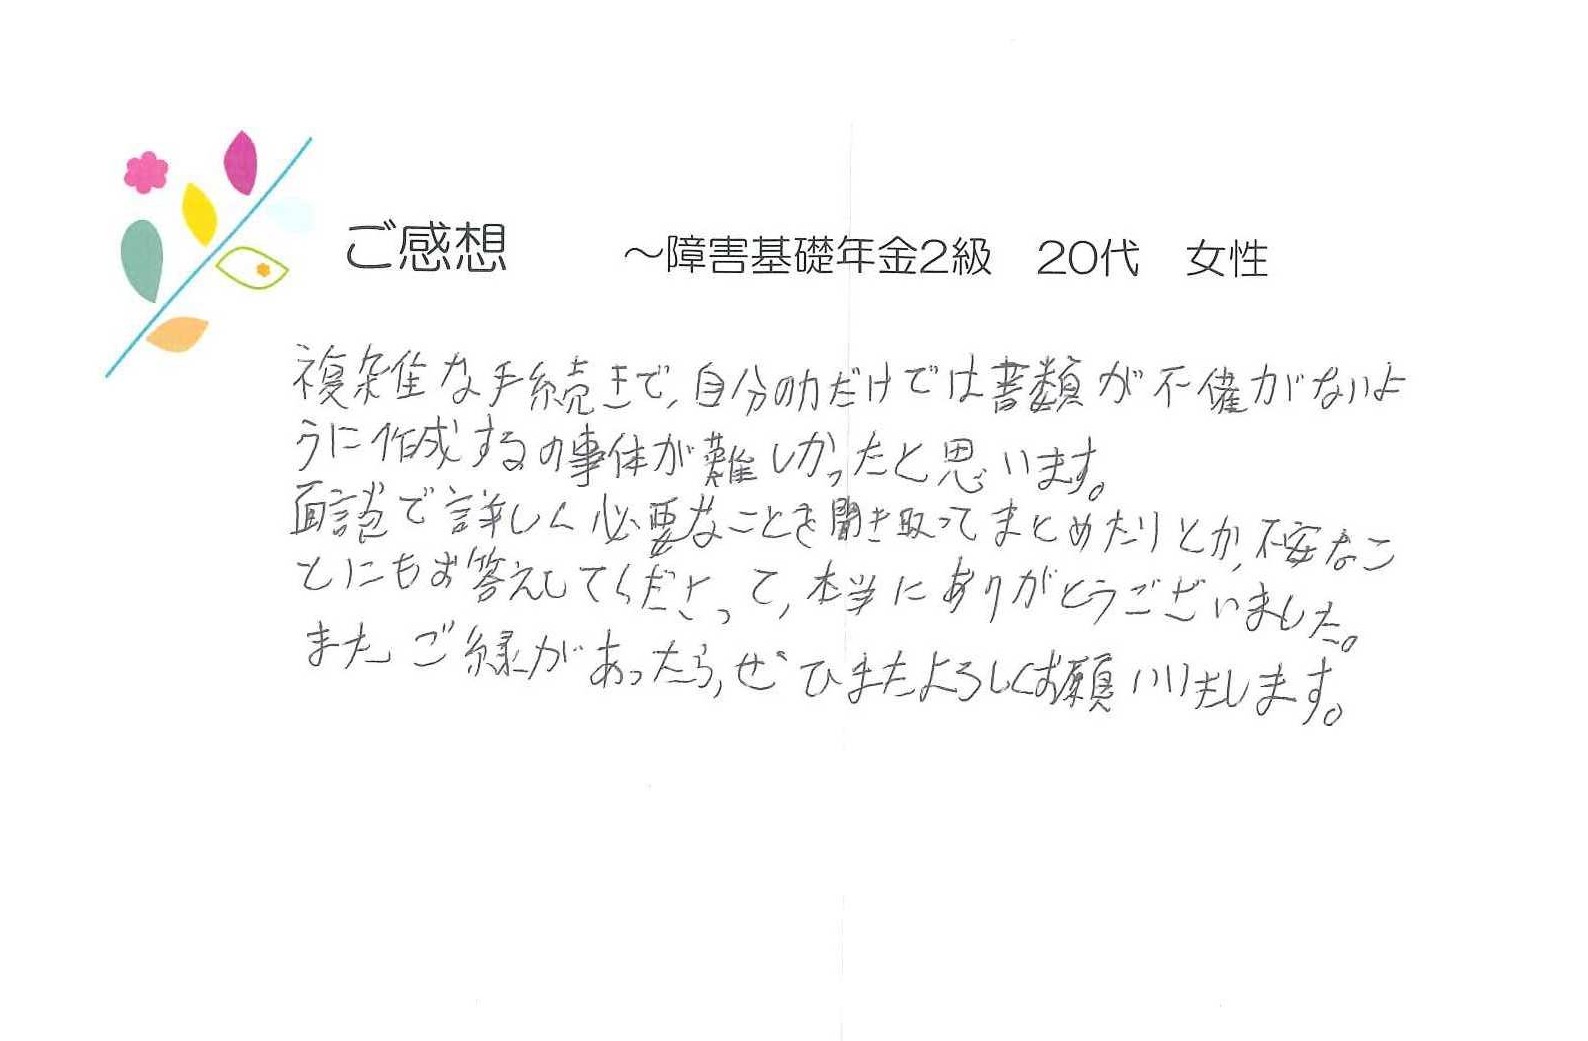 ご感想 ～障害基礎年金2級 20代 女性
複雑な手続きで、自分の力だけでは書類が不備がないよ
うに作成するの事体が難しかったと思います。
面談で詳しく必要なことを聞き取ってまとめたりとか、不安なこ
とにもお答えしてくださって、本当にありがとうございました。
またご縁があったら、ぜひまたよろしくお願いいたします。